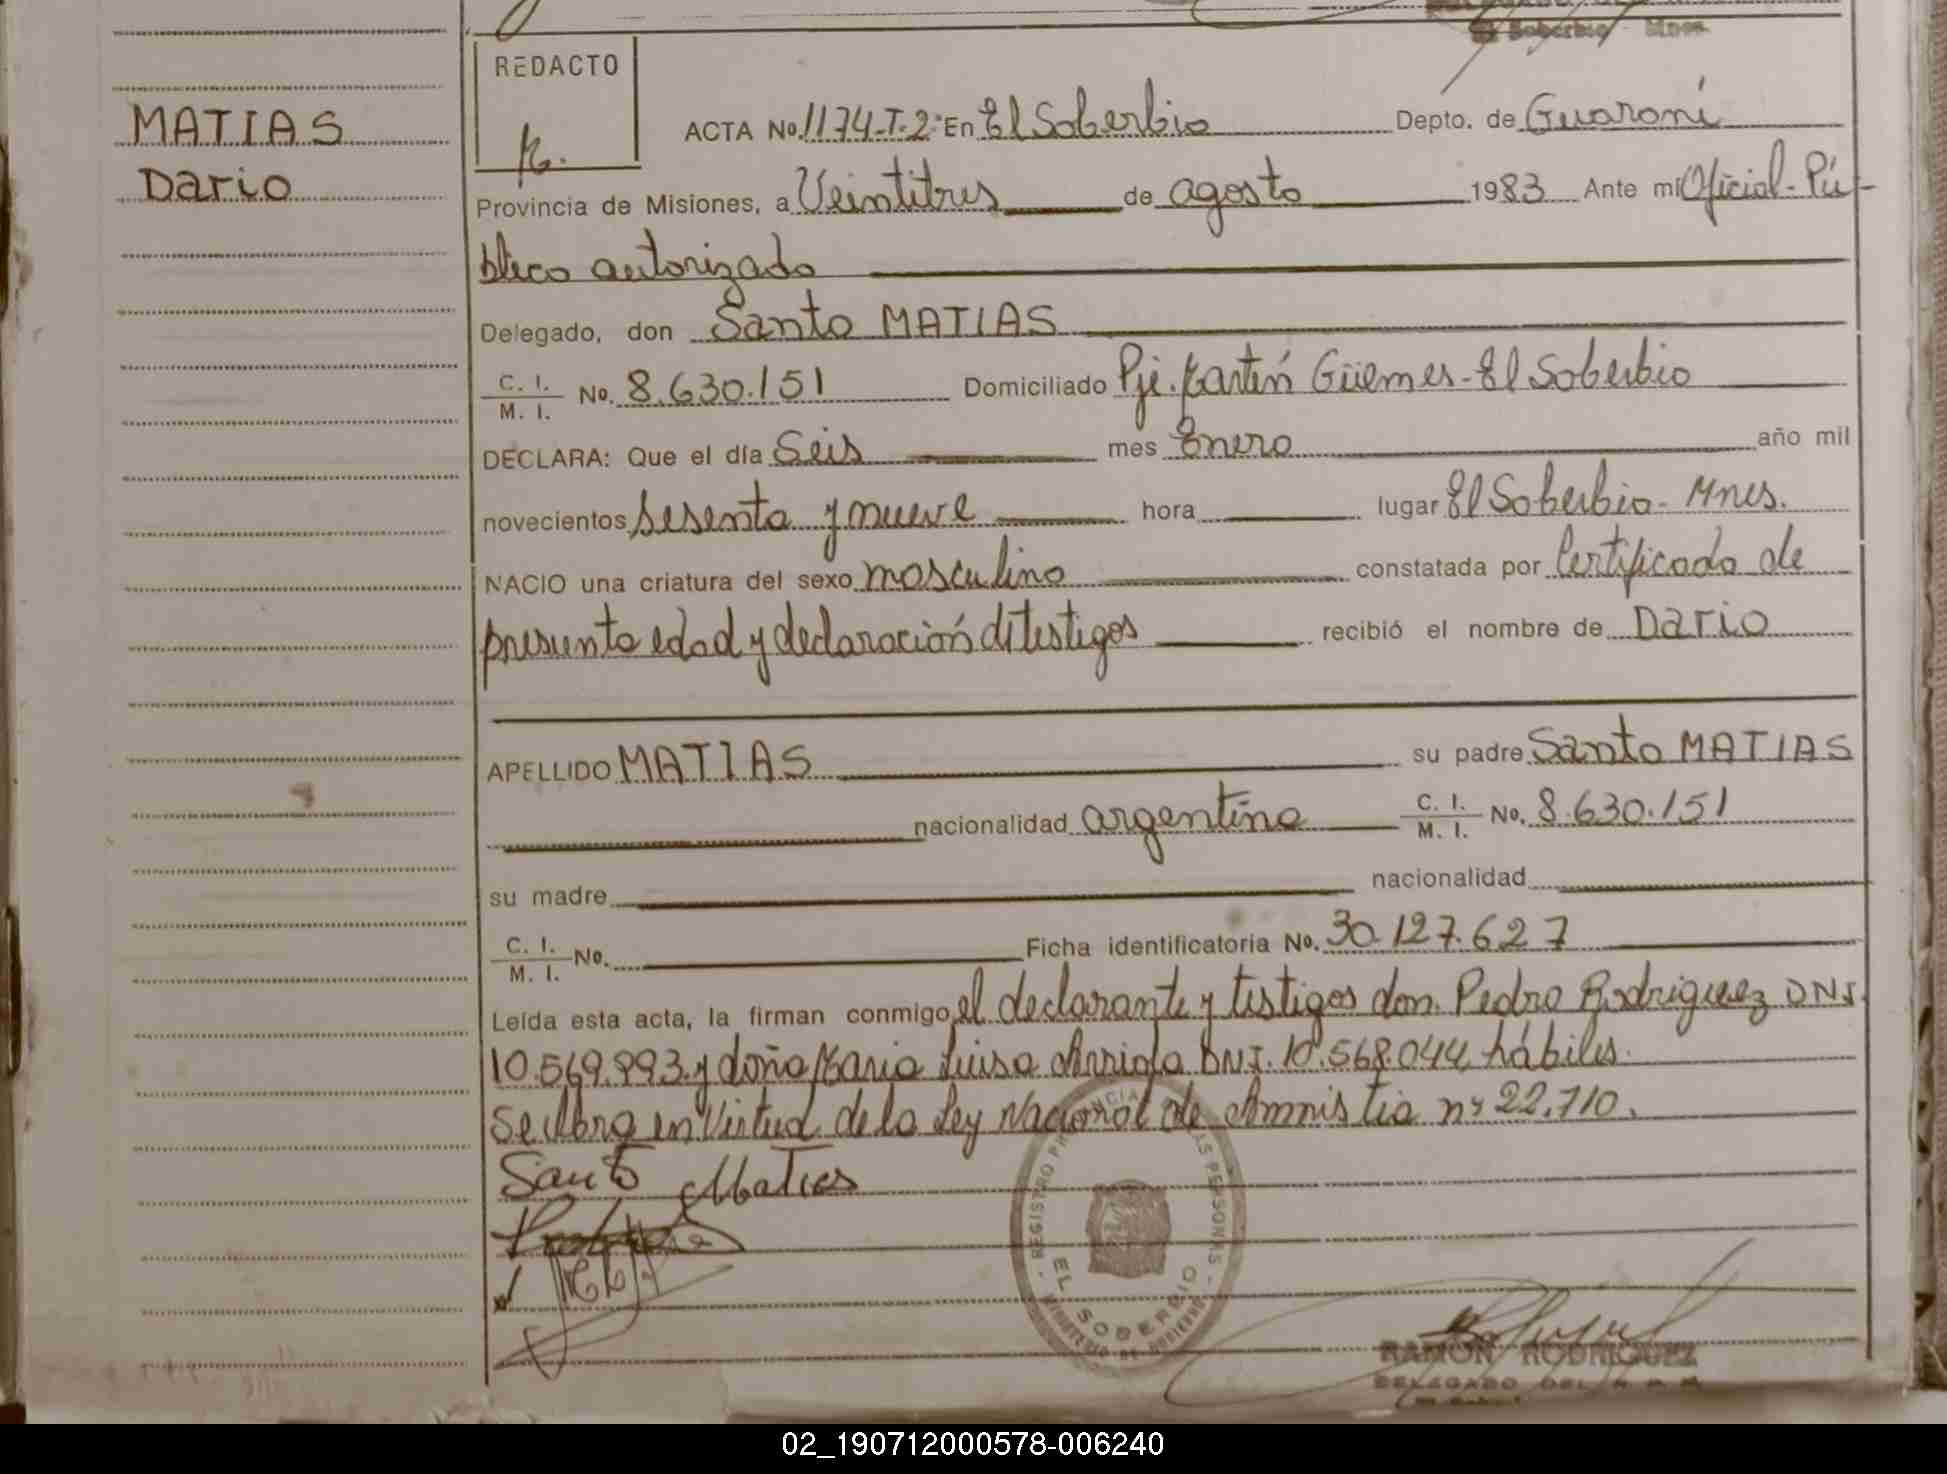 El Soberbio - Mnes.
REDACTO
MATIAS
Dario
ACTA No. 1174-T-2º En El Soberbio Depto. de Guaraní
Provincia de Misiones, a Veintitres de agosto 1983 Ante mí Oficial-Pú-
blico autorizado
Delegado, don Santo MATIAS
C. I. / M. I. No. 8.630.151 Domiciliado Pje. Martín Güemes-El Soberbio
DECLARA: Que el día Seis mes Enero año mil
novecientos sesenta y nueve hora lugar El Soberbio-Mnes.
NACIO una criatura del sexo masculino constatada por Certificado de
presunta edad y declaración de testigos recibió el nombre de Dario
APELLIDO MATIAS su padre Santo MATIAS
nacionalidad argentina C. I. / M. I. No. 8.630.151
su madre nacionalidad
C. I. / M. I. No. Ficha identificatoria No. 30.127.627
Leída esta acta, la firman conmigo el declarante y testigos don Pedro Rodriguez DNI.
10.569.993 y doña Maria Luisa Arriola DNI. 10.568.044 hábiles.
Se labra en virtud de la Ley Nacional de Amnistia nº 22.710.
Santo Matias
REGISTRO PROVINCIAL DE LAS PERSONAS
EL SOBERBIO
MINISTERIO DE GOBIERNO
RAMON RODRIGUEZ
DELEGADO DEL R.P.P.
02_190712000578-006240